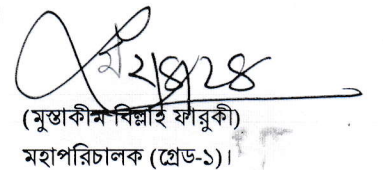 ২/৪/২৪
(মুস্তাকীম বিল্লাহ ফারুকী)
মহাপরিচালক (গ্রেড-১)।